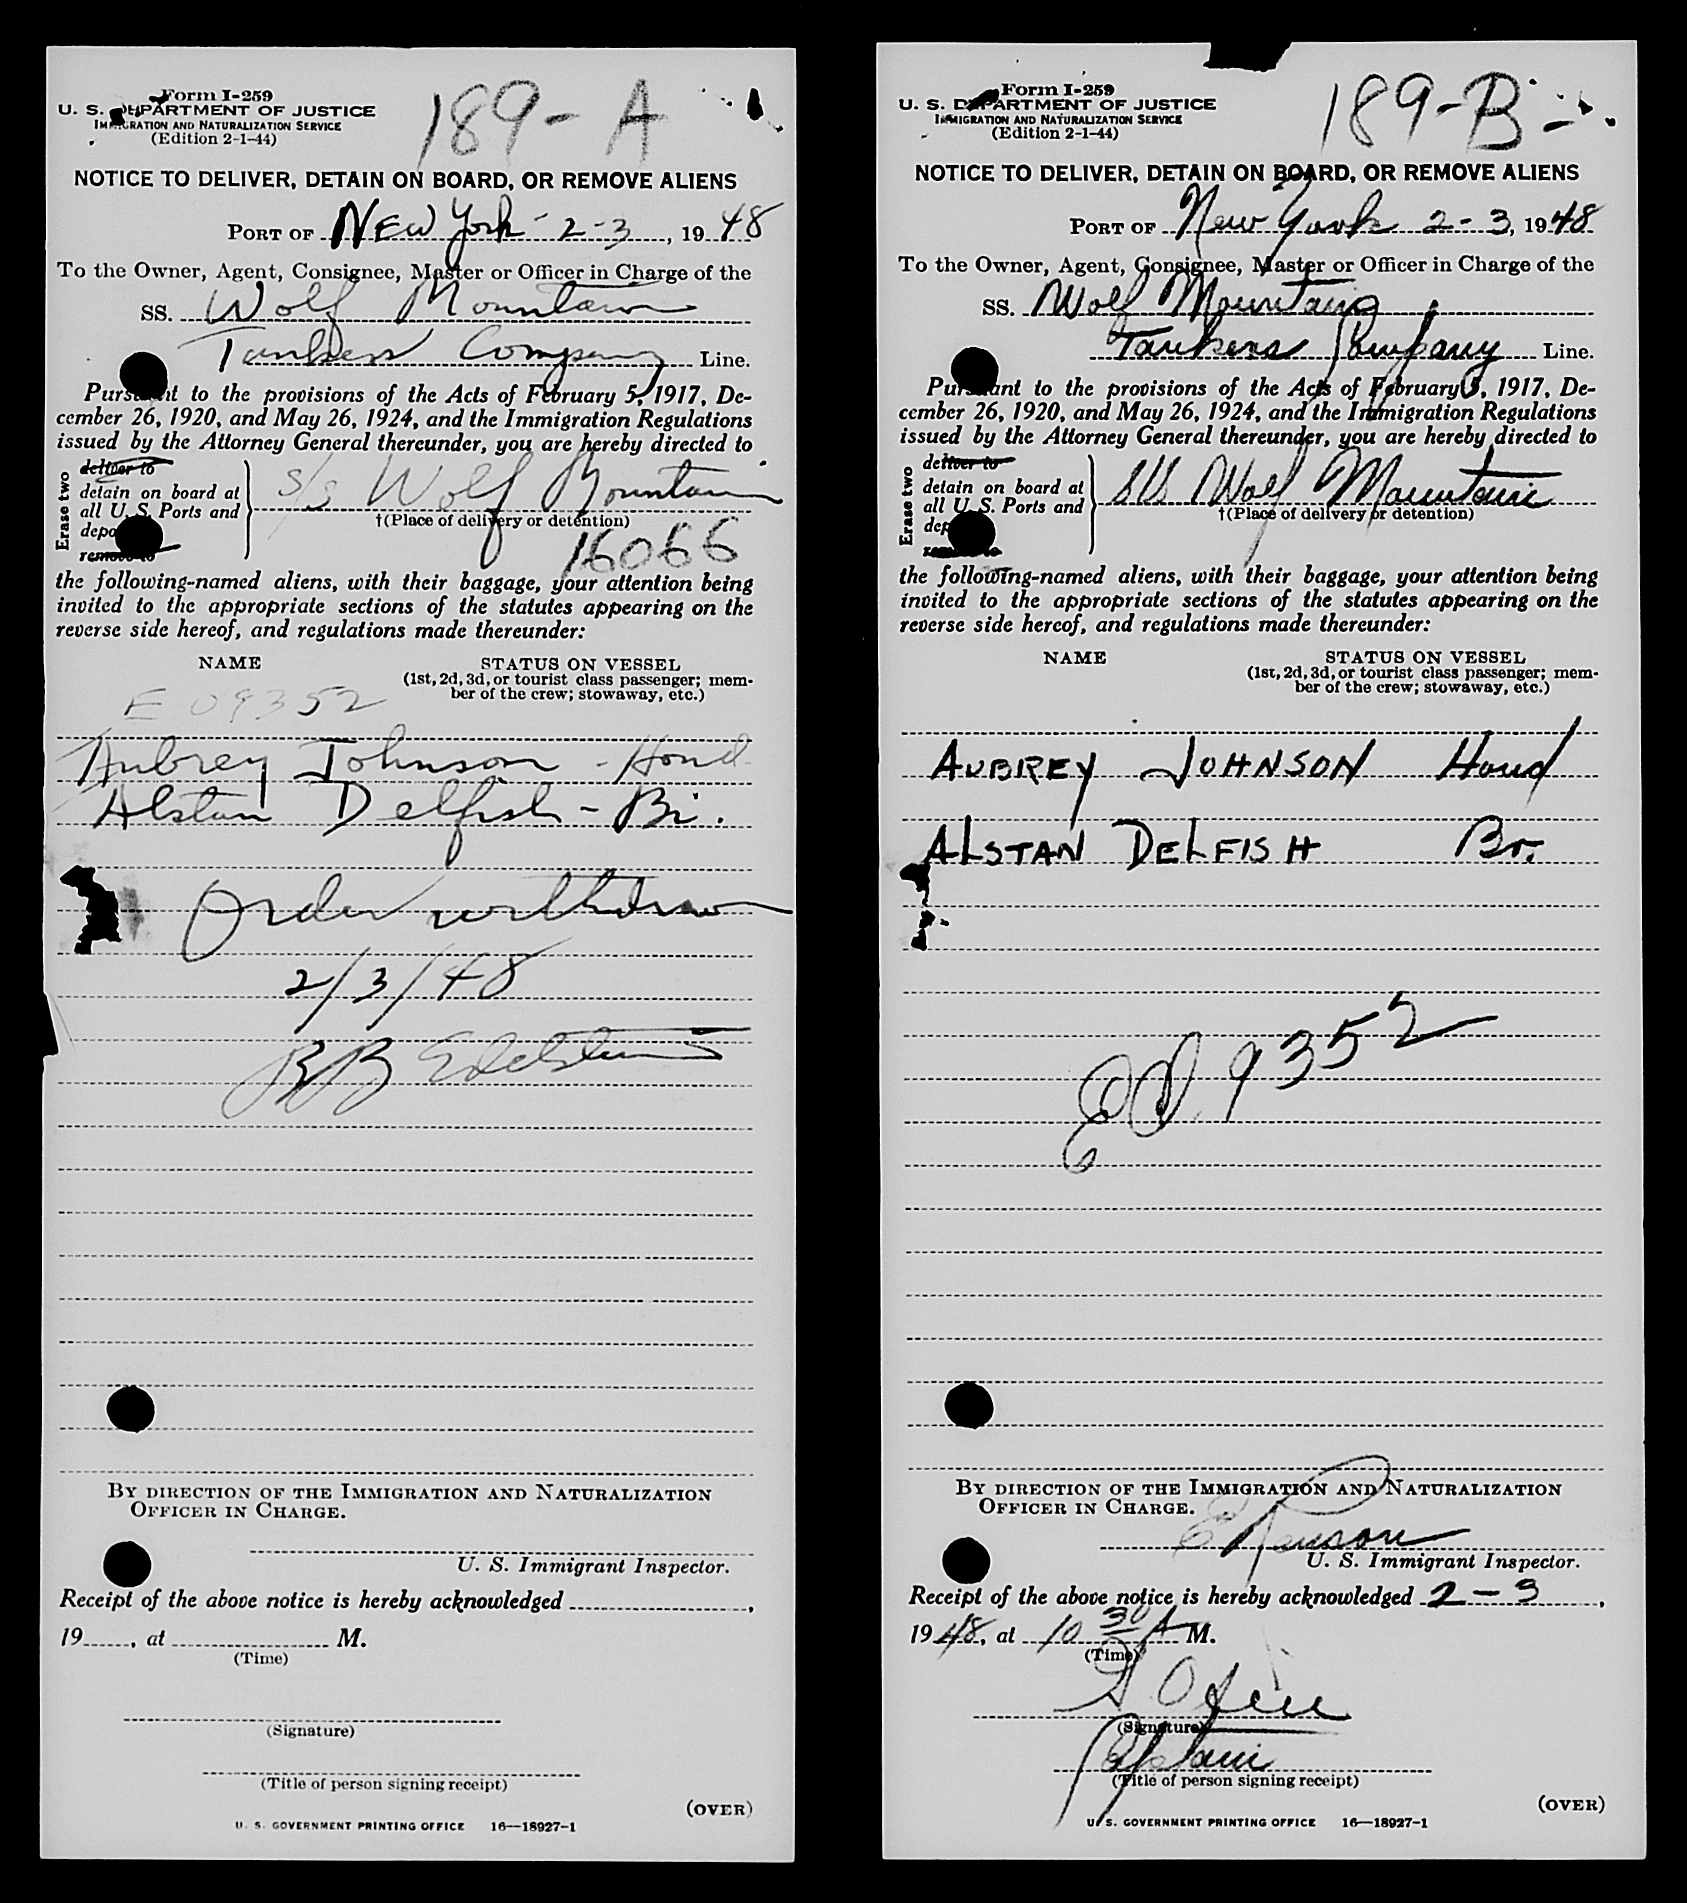 Form I-259
U. S. DEPARTMENT OF JUSTICE
IMMIGRATION AND NATURALIZATION SERVICE
(Edition 2-1-44)
189-A
NOTICE TO DELIVER, DETAIN ON BOARD, OR REMOVE ALIENS
PORT OF New York - 2-3, 1948
To the Owner, Agent, Consignee, Master or Officer in Charge of the
SS. Wolf Mountain
Tankers Company Line.
Pursuant to the provisions of the Acts of February 5, 1917, De-
cember 26, 1920, and May 26, 1924, and the Immigration Regulations
issued by the Attorney General thereunder, you are hereby directed to
Erase two
deliver to
detain on board at
all U. S. Ports and
remove to
S/S Wolf Mountain
†(Place of delivery or detention)
16066
the following-named aliens, with their baggage, your attention being
invited to the appropriate sections of the statutes appearing on the
reverse side hereof, and regulations made thereunder:
NAME STATUS ON VESSEL
(1st, 2d, 3d, or tourist class passenger; mem-
ber of the crew; stowaway, etc.)
E 09352
Aubrey Johnson - Hond
Alstan Delfish - Br.
Order withdrawn
2/3/48
BB Edelstein
BY DIRECTION OF THE IMMIGRATION AND NATURALIZATION
OFFICER IN CHARGE.
U. S. Immigrant Inspector.
Receipt of the above notice is hereby acknowledged ,
19 , at M.
(Time)
(Signature)
(Title of person signing receipt)
(OVER)
U. S. GOVERNMENT PRINTING OFFICE 16—18927-1
Form I-259
U. S. DEPARTMENT OF JUSTICE
IMMIGRATION AND NATURALIZATION SERVICE
(Edition 2-1-44)
189-B
NOTICE TO DELIVER, DETAIN ON BOARD, OR REMOVE ALIENS
PORT OF New York 2-3, 1948
To the Owner, Agent, Consignee, Master or Officer in Charge of the
SS. Wolf Mountain
Tankers Company Line.
Pursuant to the provisions of the Acts of February 5, 1917, De-
cember 26, 1920, and May 26, 1924, and the Immigration Regulations
issued by the Attorney General thereunder, you are hereby directed to
Erase two
deliver to
detain on board at
all U. S. Ports and
SS Wolf Mountain
†(Place of delivery or detention)
the following-named aliens, with their baggage, your attention being
invited to the appropriate sections of the statutes appearing on the
reverse side hereof, and regulations made thereunder:
NAME STATUS ON VESSEL
(1st, 2d, 3d, or tourist class passenger; mem-
ber of the crew; stowaway, etc.)
AUBREY JOHNSON Hond
ALSTAN DELFISH Br.
9352
BY DIRECTION OF THE IMMIGRATION AND NATURALIZATION
OFFICER IN CHARGE.
U. S. Immigrant Inspector.
Receipt of the above notice is hereby acknowledged 2-3,
1948, at 10 30 A M.
(Time)
(Signature)
Captain
(Title of person signing receipt)
(OVER)
U. S. GOVERNMENT PRINTING OFFICE 16—18927-1